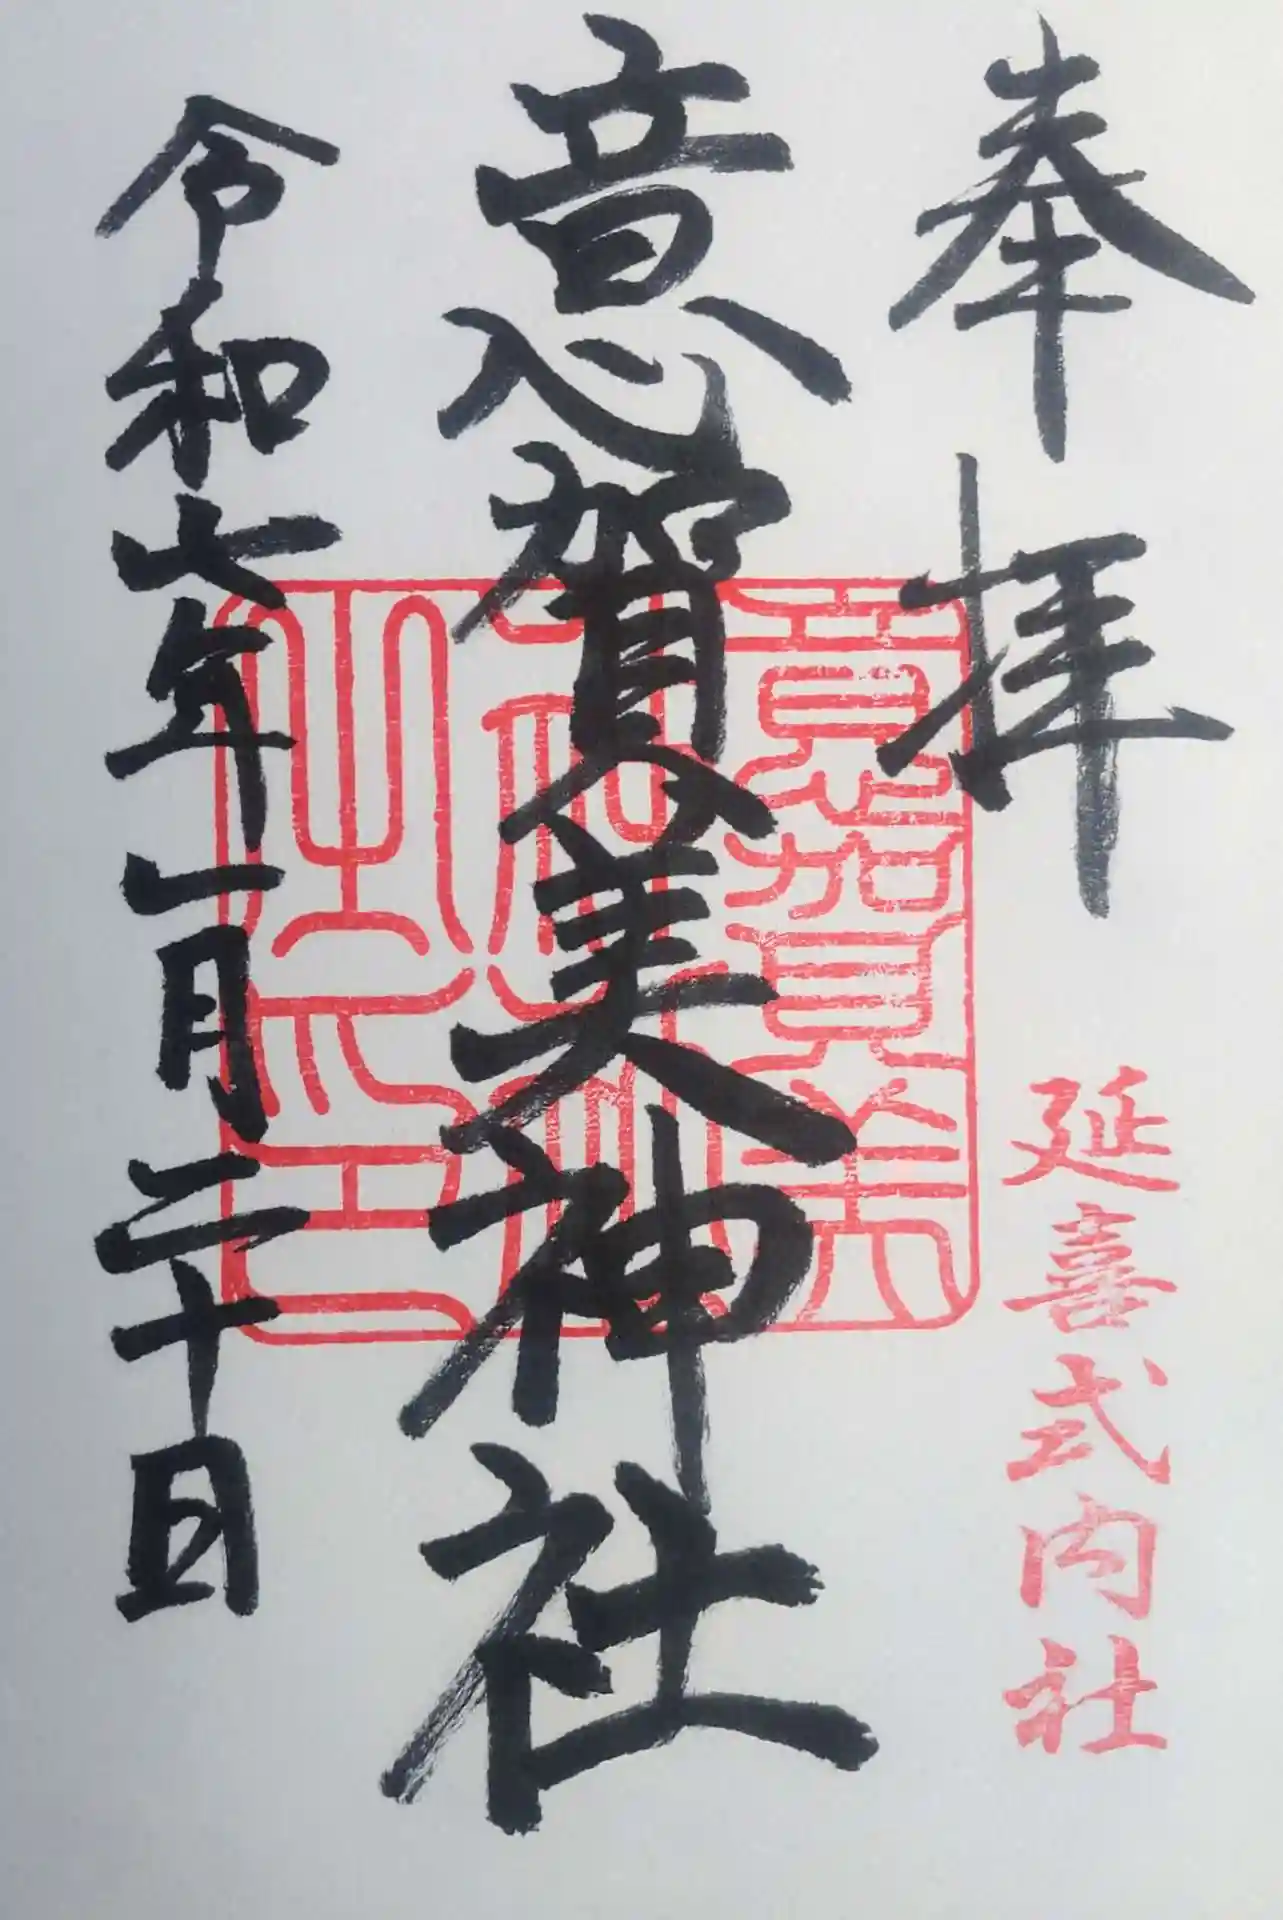 奉拝
延喜式内社
意賀美神社
意賀美
神社
之印
令和七年一月二十日